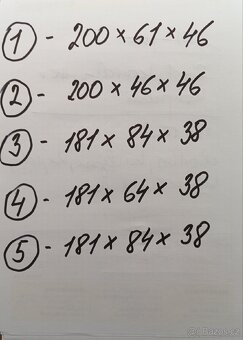 ① - 200 × 61 × 46
② - 200 × 46 × 46
③ - 181 × 84 × 38
④ - 181 × 64 × 38
⑤ - 181 × 84 × 38